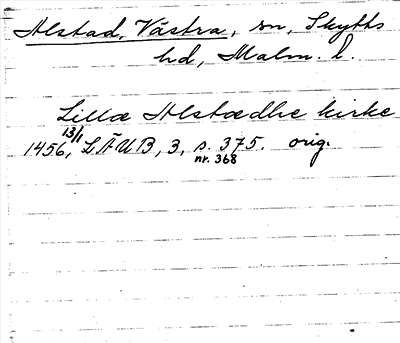 Alstad, Västra, sn, Skytts
hd, Malm. l.
Lillæ Alstædhe kirke
13/1
1456, LÄUB, 3, s. 375. orig.
nr. 368